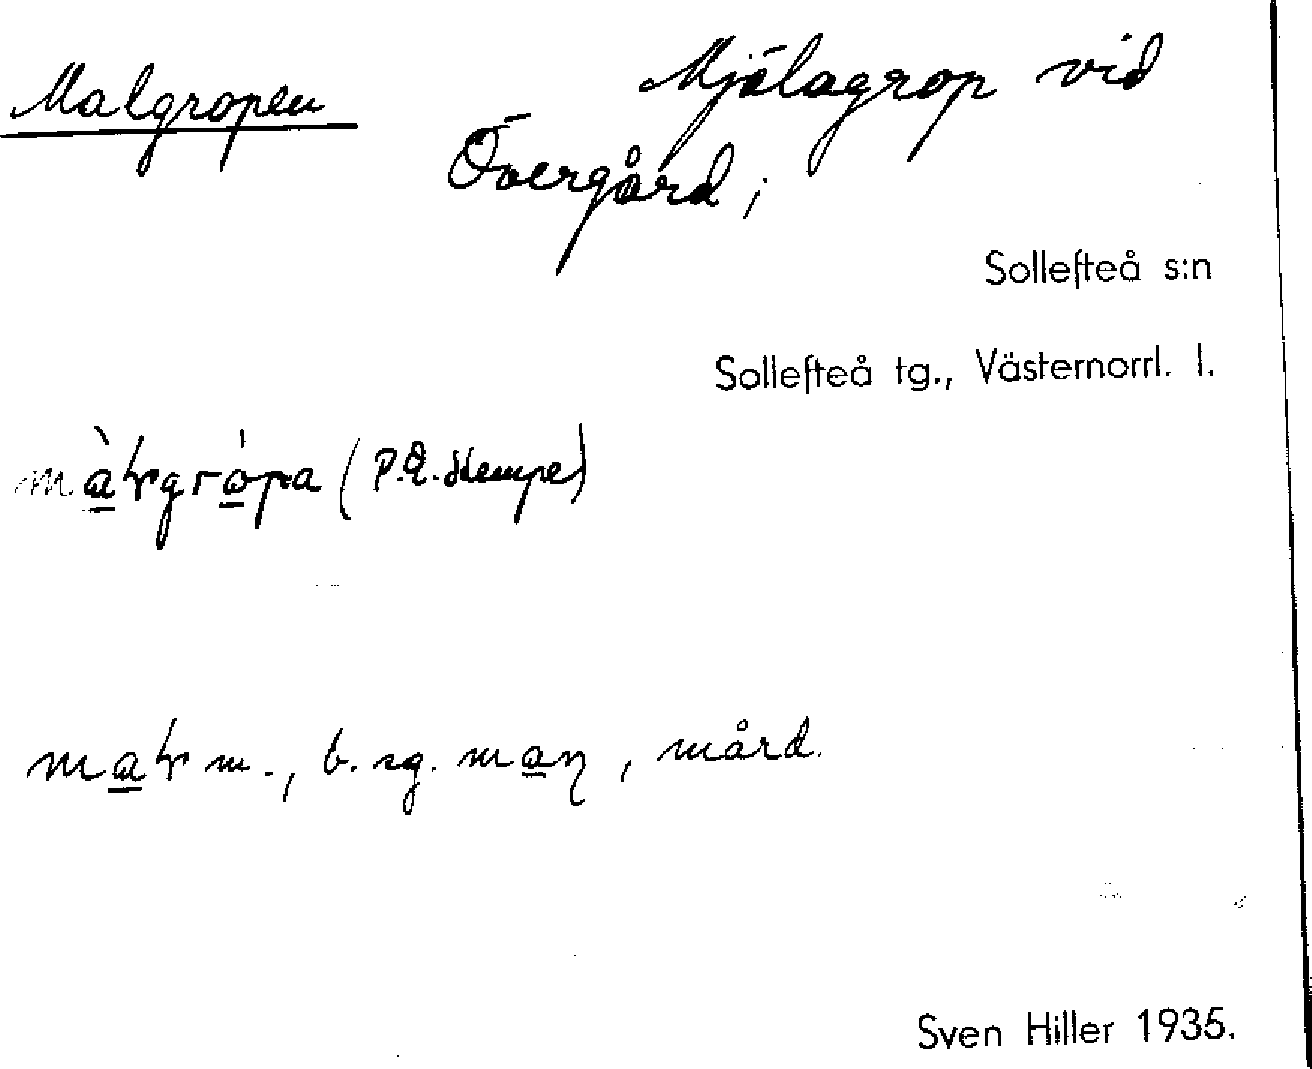 Malgropen
Mjälagrop vid
Övergård;
Sollefteå s:n
Sollefteå tg., Västernorrl. l.
màɽgrópa (P.O. Kempe)
maɽ m., b. sg. maɳ, mård.
Sven Hiller 1935.